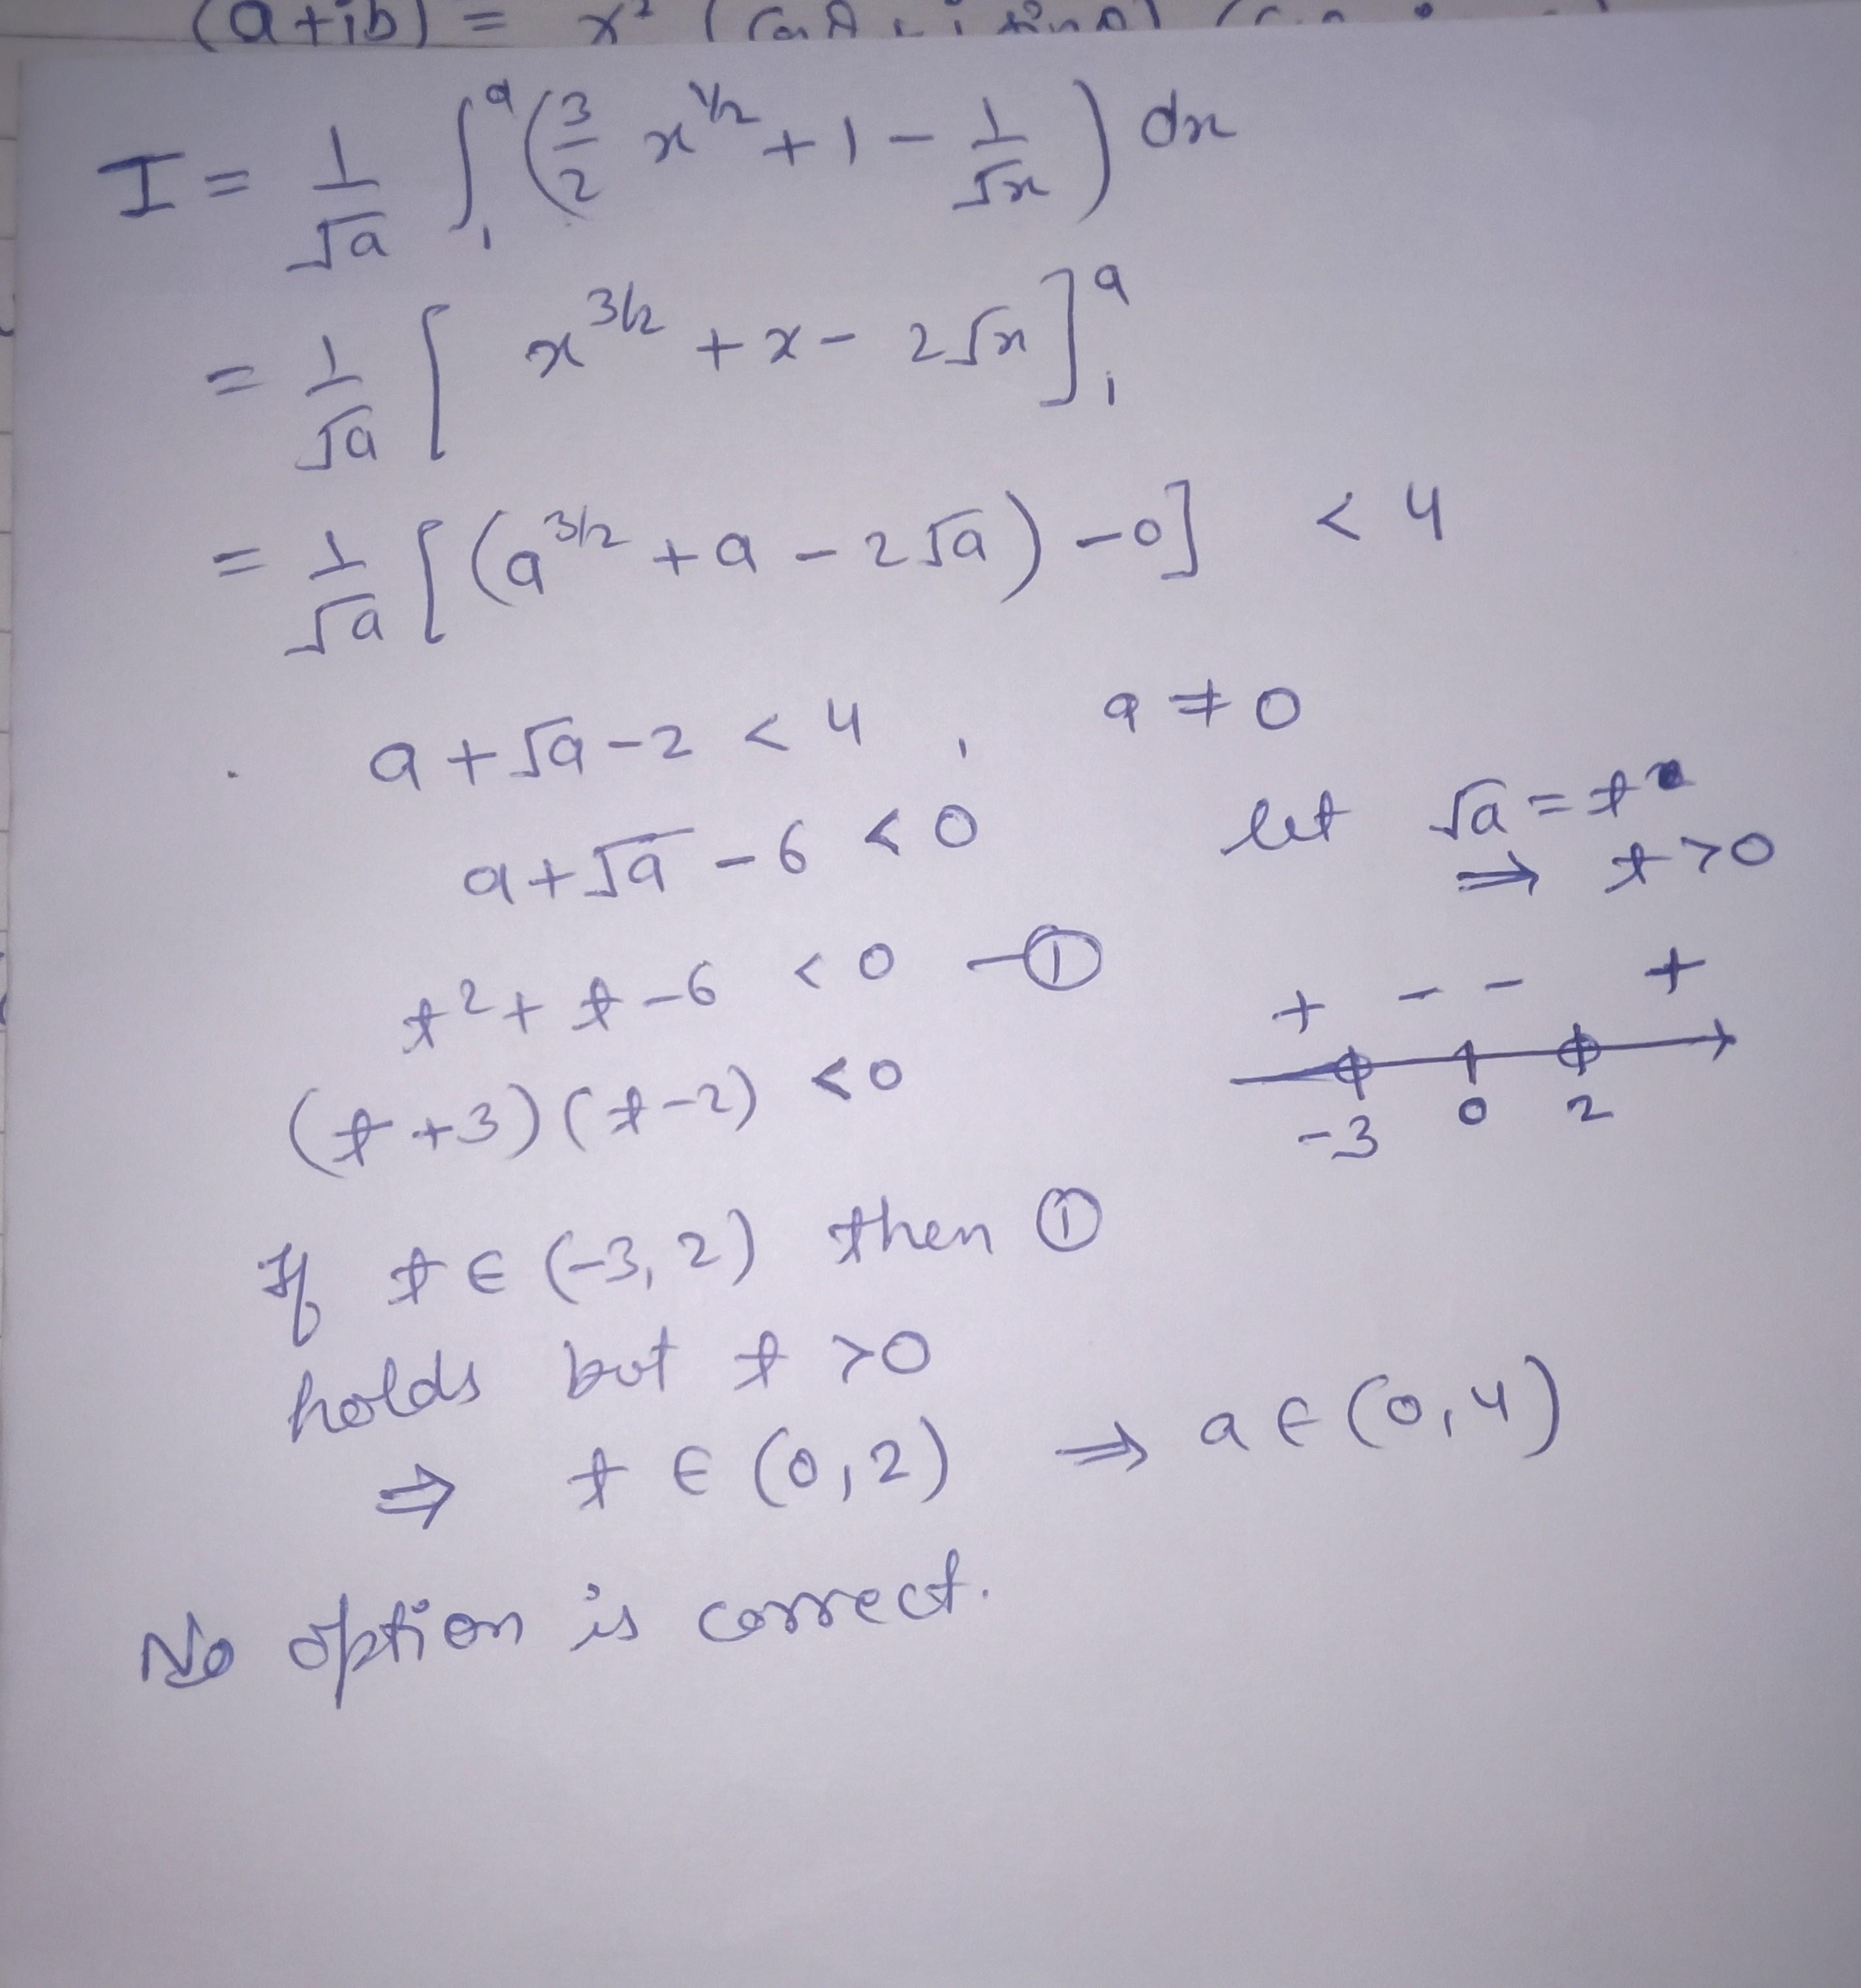 (a+ib) = r²
I = 1/√a ∫₁ᵃ (3/2 x^1/2 + 1 - 1/√x) dx
= 1/√a [ x^3/2 + x - 2√x ]₁ᵃ
= 1/√a [ (a^3/2 + a - 2√a) - 0 ] < 4
a + √a - 2 < 4 , a ≠ 0
a + √a - 6 < 0 let √a = t
⇒ t > 0
t² + t - 6 < 0 - ①
+ - - +
(t + 3) (t - 2) < 0
-3 0 2
If t ∈ (-3, 2) then ①
holds but t > 0
⇒ t ∈ (0, 2) ⇒ a ∈ (0, 4)
No option is correct.